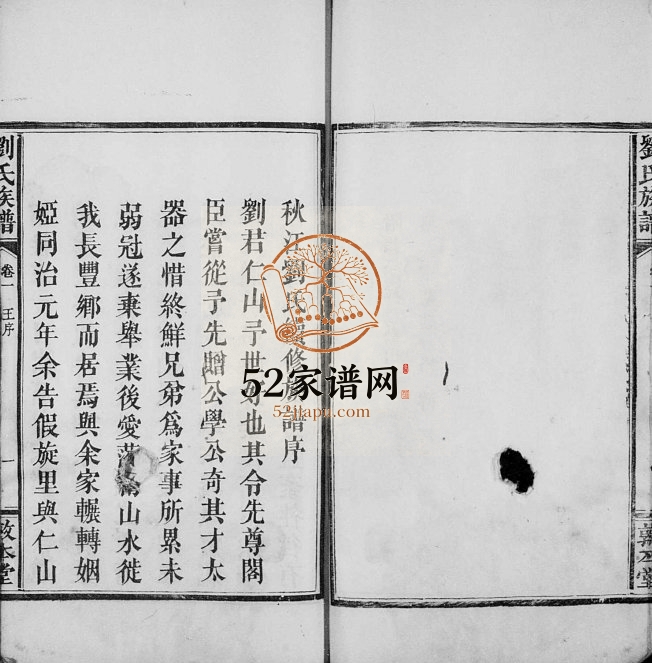 秋江劉氏續修族譜序
劉君仁山予世好也其令先尊閣
臣嘗從予先贈公學公奇其才太
器之惜終鮮兄弟爲家事所累未
弱冠遂棄舉業後愛山水徙
我長豐鄉而居焉與余家輾轉姻
婭同治元年余告假旋里與仁山
劉氏族譜
卷一
王序
一
敦本堂
劉氏族譜
敦本堂
52家谱网
52jiapu.com